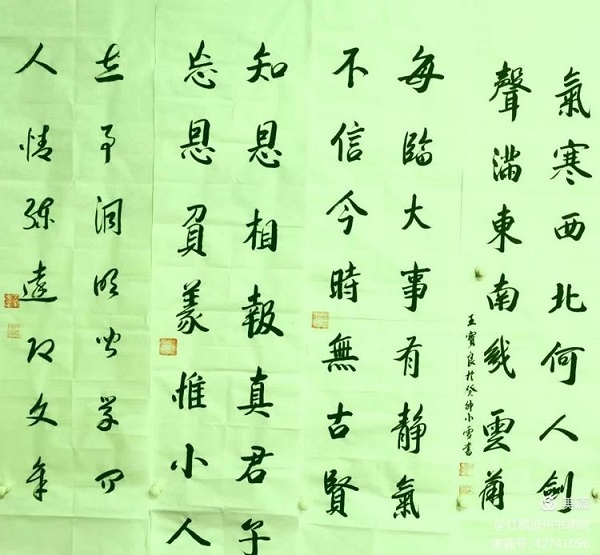 氣寒西北何人劍
聲滿東南幾處簫
王寶良於癸卯小雪書
每臨大事有靜氣
不信今時無古賢
知恩相報真君子
忘恩負義惟小人
世事洞明皆學問
人情練達即文章
美篇
美篇号: 42741096